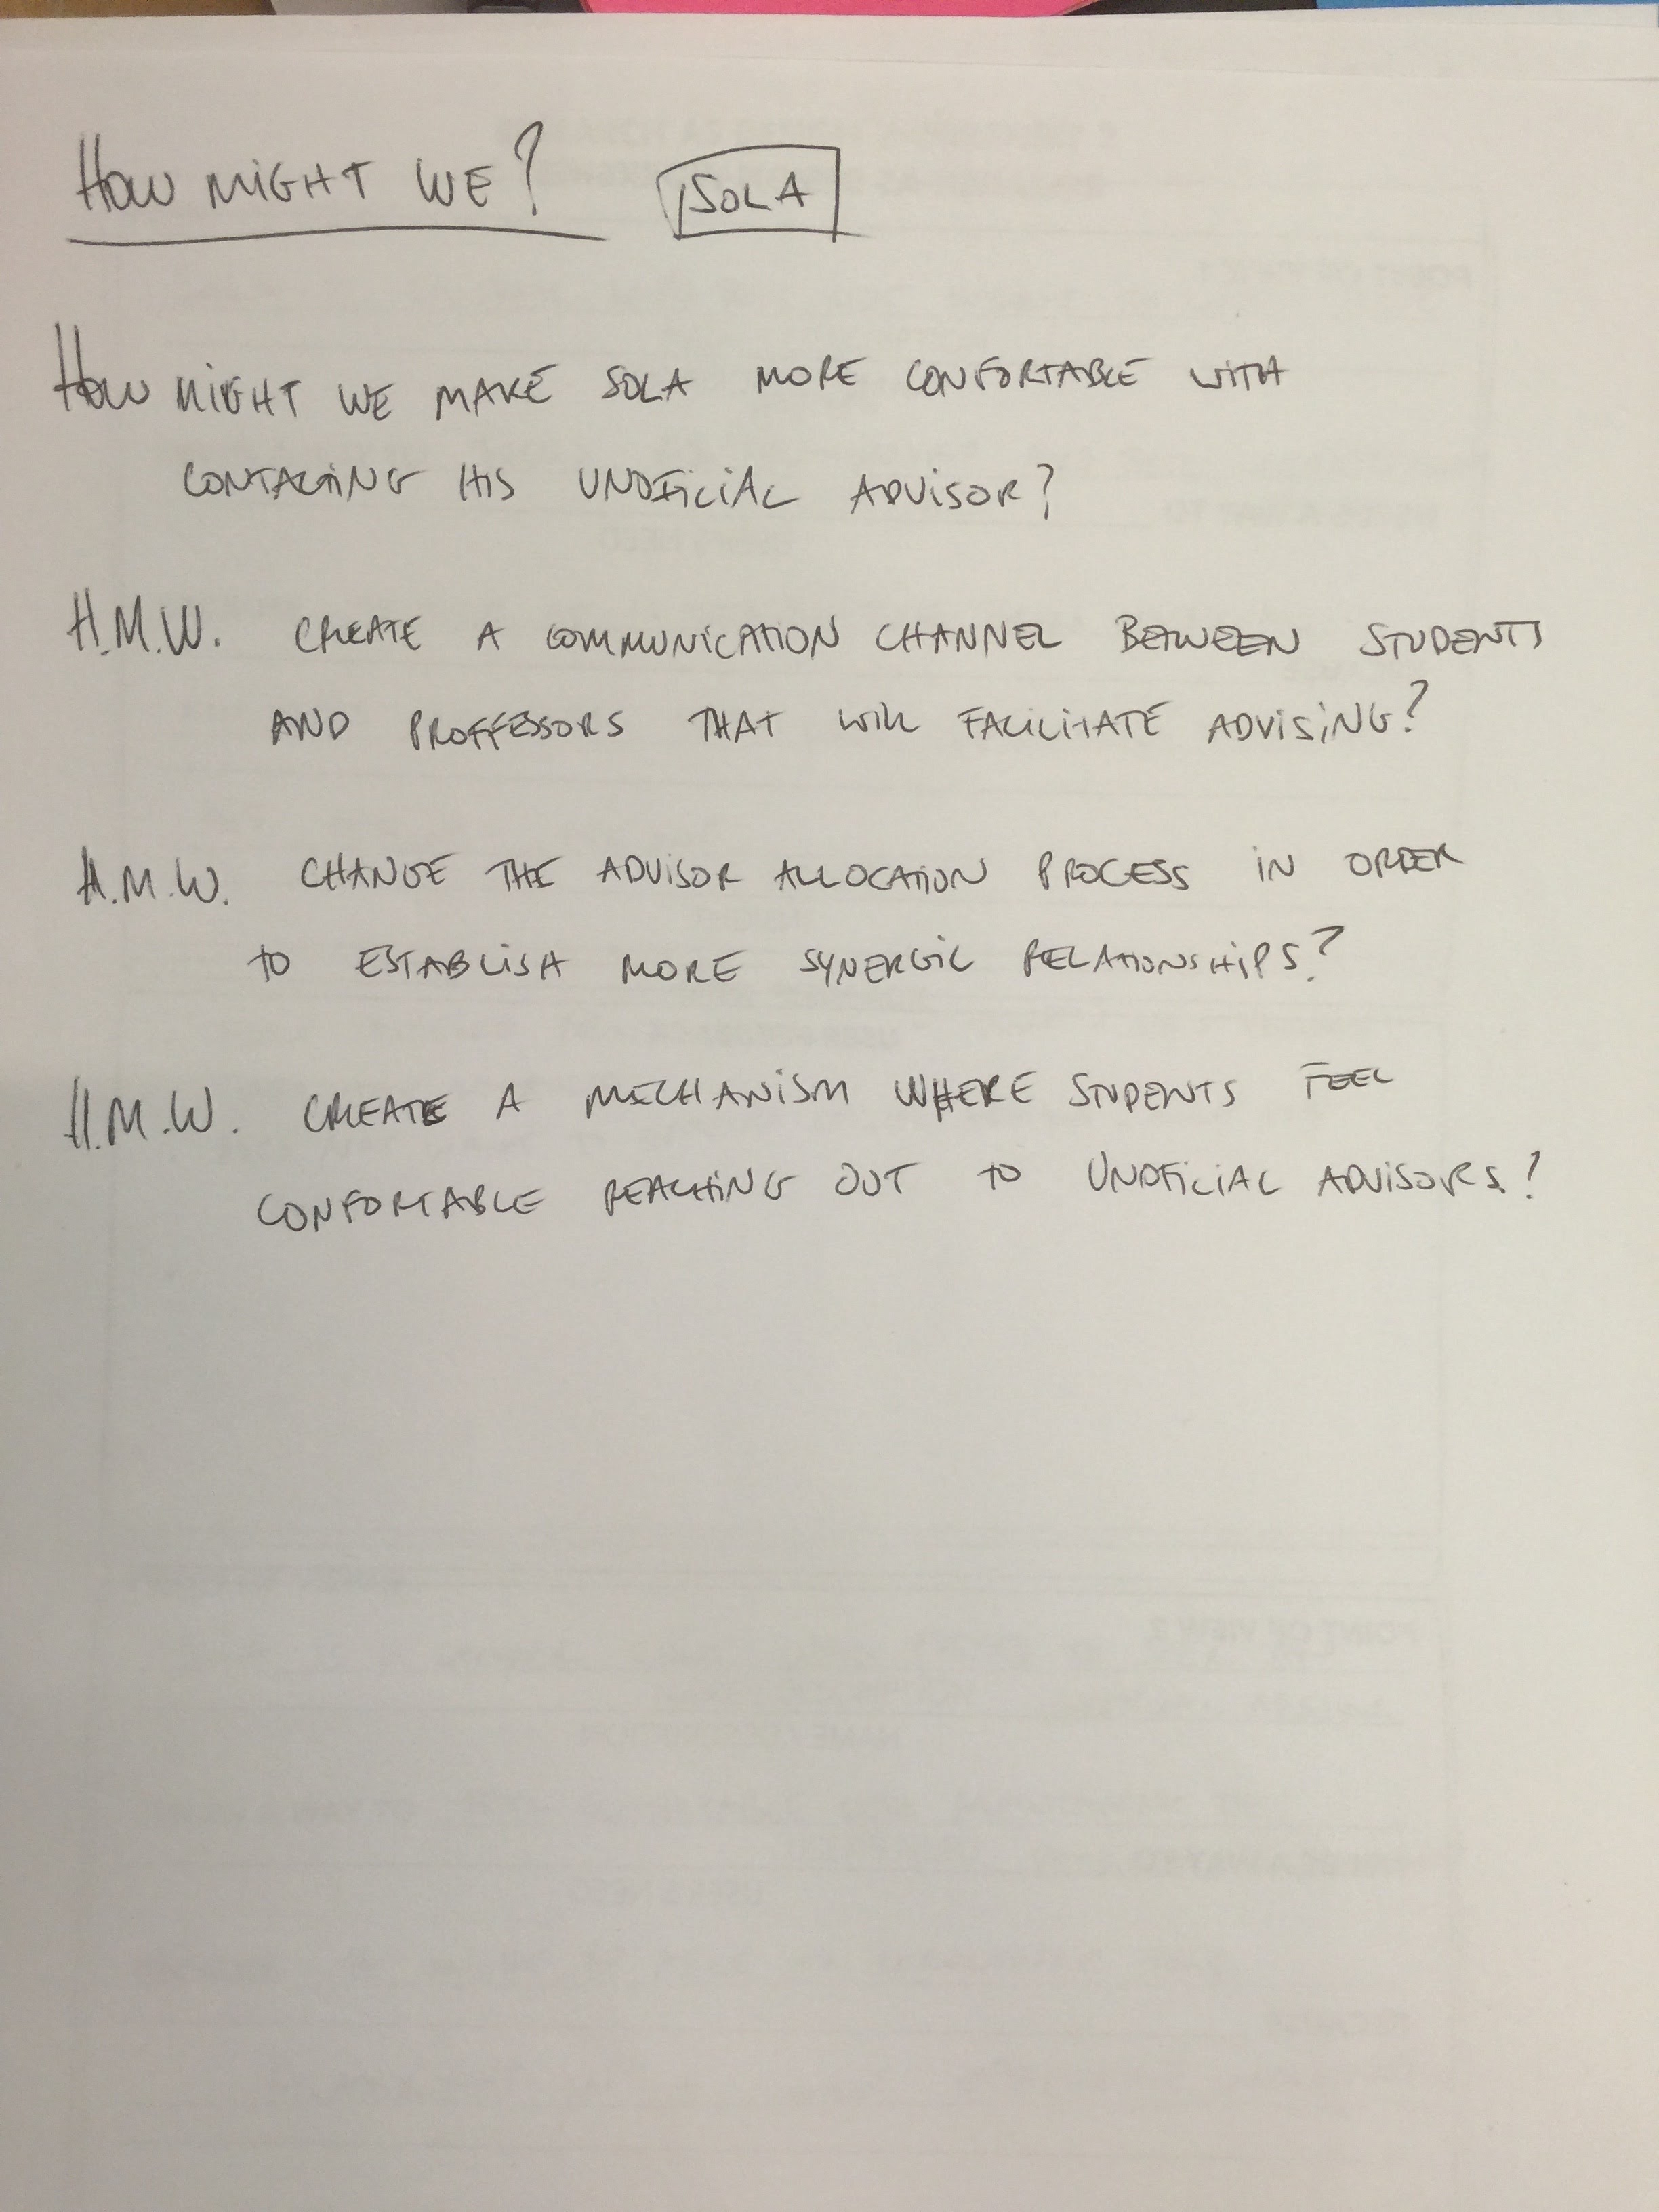 HOW MIGHT WE? SOLA
HOW MIGHT WE MAKE SOLA MORE CONFORTABLE WITH
CONTACTING HIS UNOFICIAL ADVISOR?
H.M.W. CREATE A COMMUNICATION CHANNEL BETWEEN STUDENTS
AND PROFFESSORS THAT WILL FACILITATE ADVISING?
H.M.W. CHANGE THE ADVISOR ALLOCATION PROCESS IN ORDER
TO ESTABLISH MORE SYNERGIC RELATIONSHIPS?
H.M.W. CREATE A MECHANISM WHERE STUDENTS FEEL
CONFORTABLE REACHING OUT TO UNOFICIAL ADVISORS?
POINT OF VIEW 2